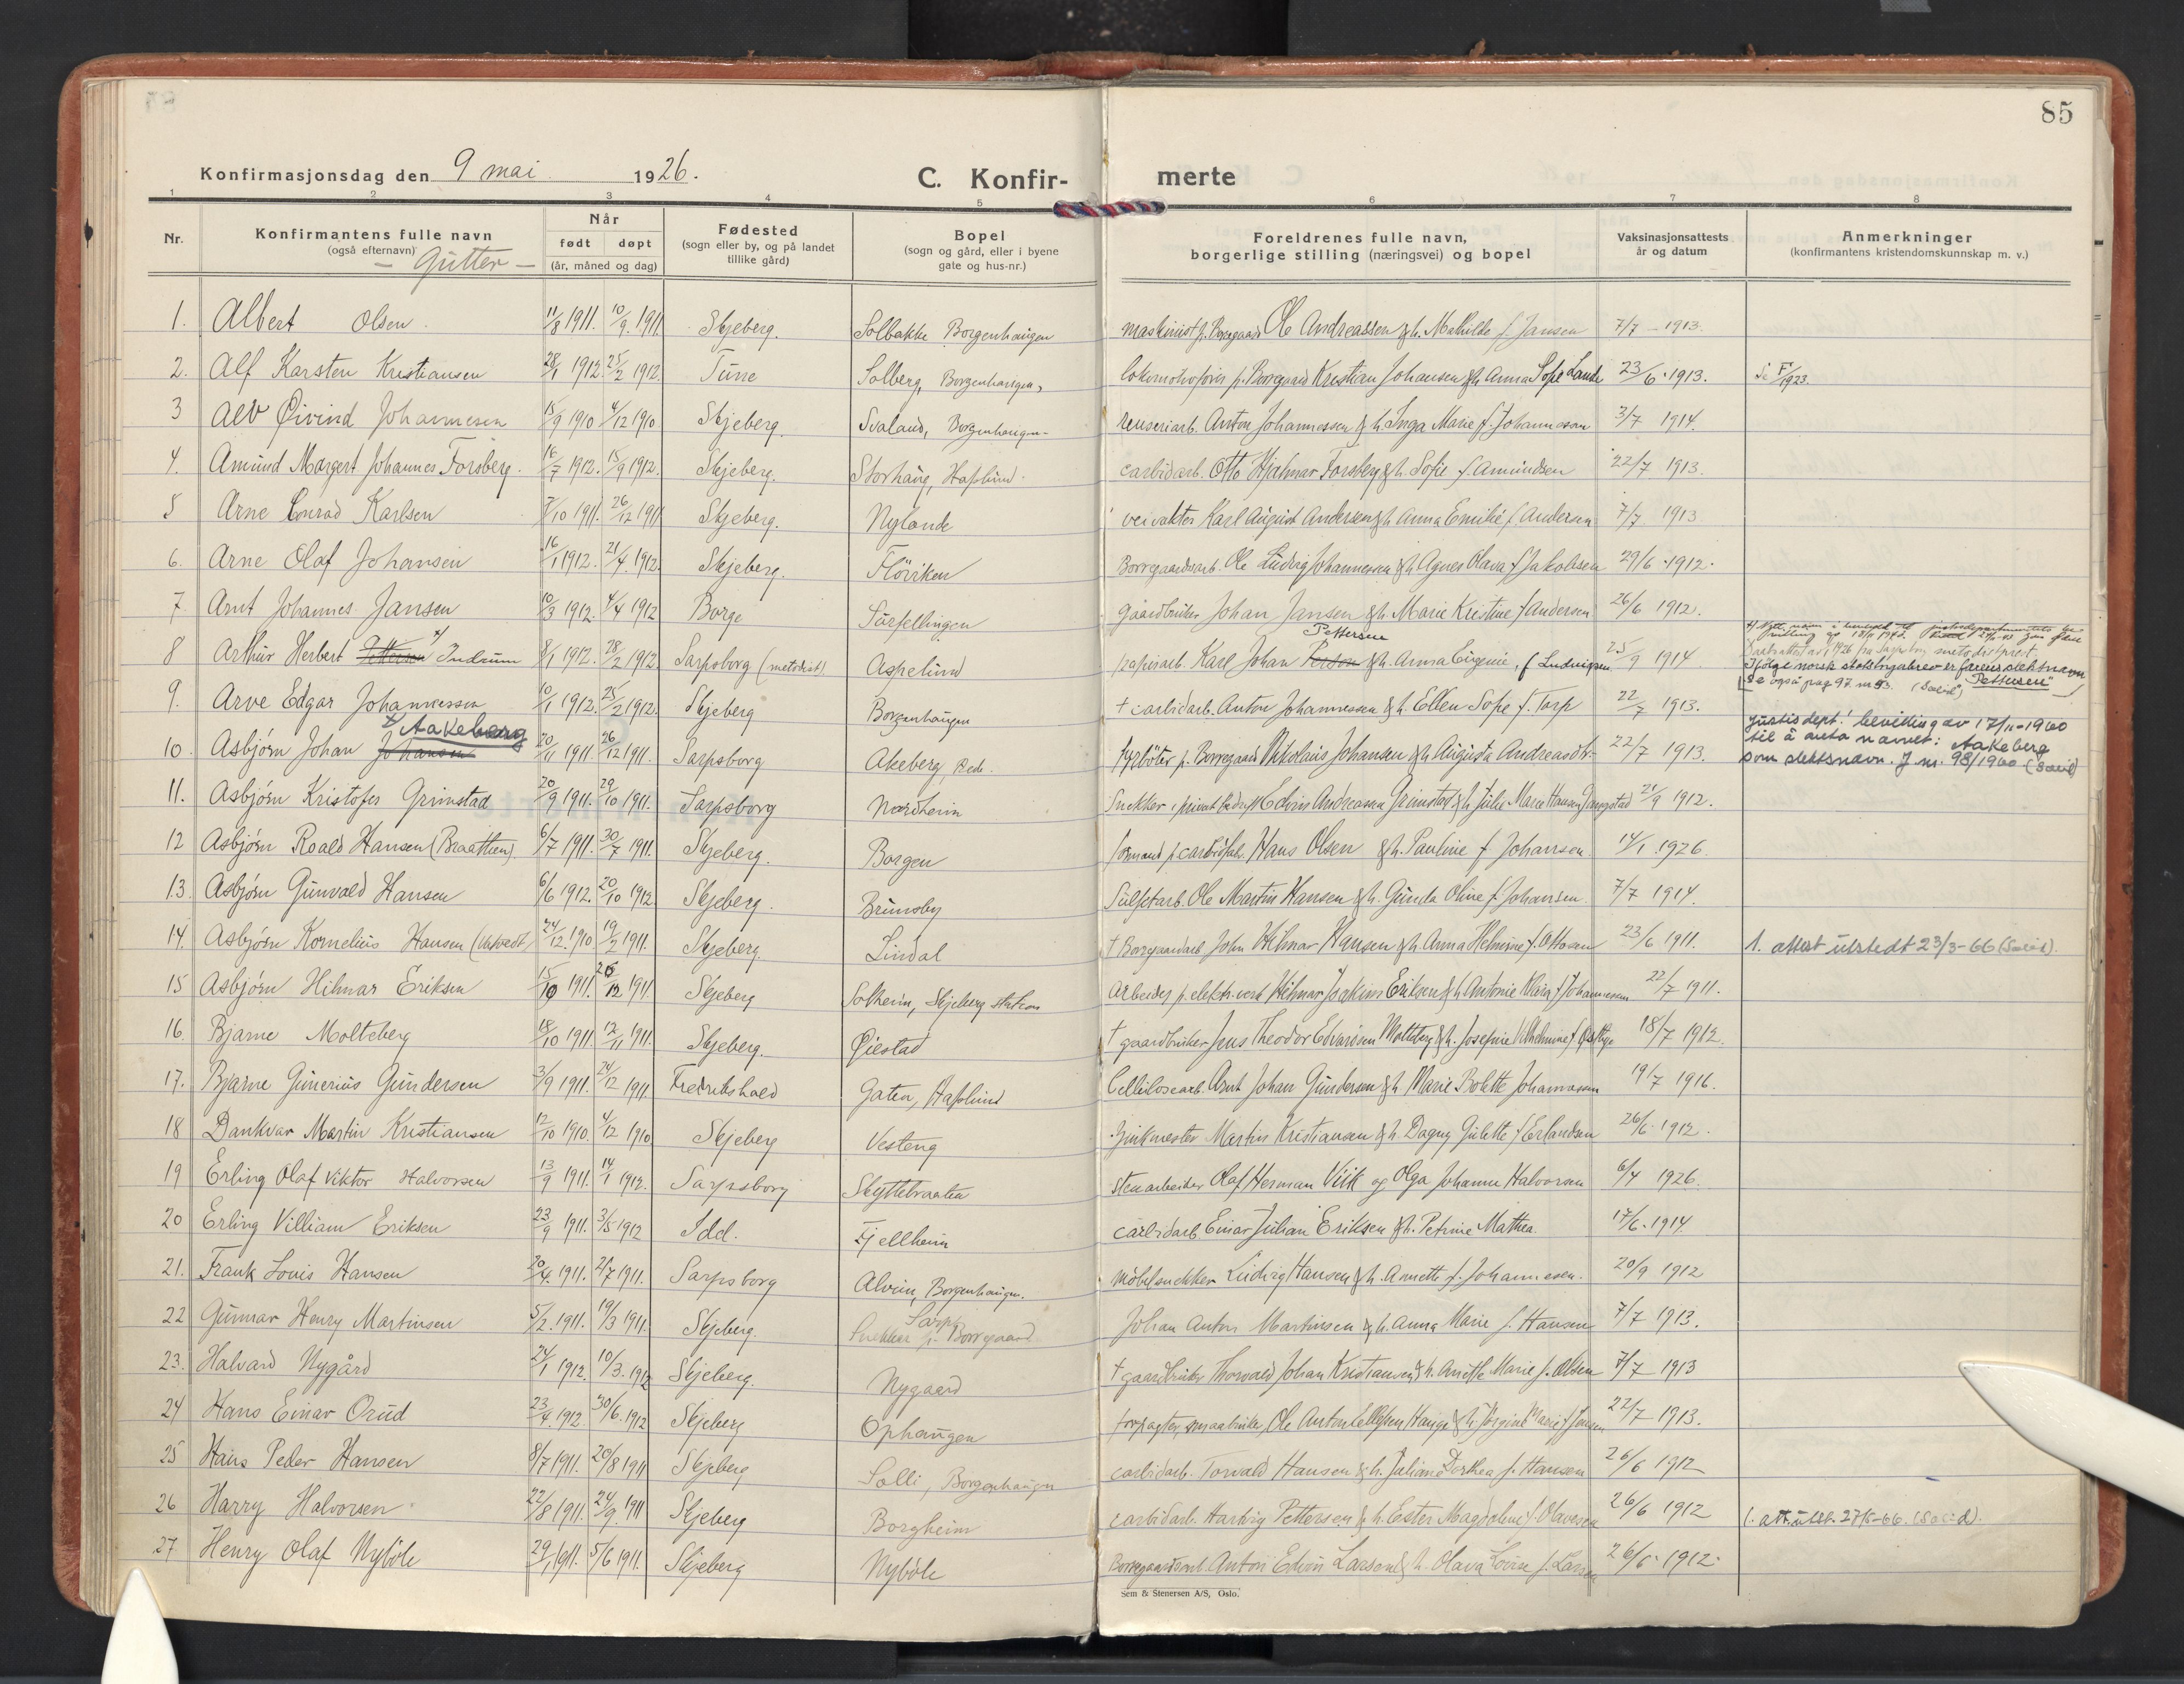 85
Konfirmasjonsdag den 9 mai 1926. C. Konfir- merte
1 2 3 4 5 6 7 8
Nr. Konfirmantens fulle navn (også efternavn) - Gutter - Når født døpt (år, måned og dag) Fødested (sogn eller by, og på landet tillike gård) Bopel (sogn og gård, eller i byene gate og hus-nr.) Foreldrenes fulle navn, borgerlige stilling (næringsvei) og bopel Vaksinasjonsattests år og datum Anmerkninger (konfirmantens kristendomskunnskap m. v.)
1. Albert Olsen. 11/8 1911. 10/9 1911. Skjeberg. Solbakke Borgenhaugen maskinist p. Borregaard Ole Andreassen & h. Mathilde f. Jansen 7/7 - 1913.
2. Alf Karsten Kristiansen 28/1 1912. 25/2 1912. Tune Solberg, Borgenhaugen, p. Borregaard Kristian Johansen & h. Anna Sofie Lande 23/6 1913. 1923.
3 Alv Øivind Johannesen 15/9 1910 4/12 1910 Skjeberg. Svaland, Borgenhaugen renseriarb. Anton Johannessen & h. Inga Marie f. Johannessen 3/7 1914.
4. Amund Margert Johannes Forsberg. 16/7 1912. 15/9 1912. Skjeberg. Storhaug, Hafslund. carbidarb. Otto Hjalmar Forsberg & h. Sofie f. Amundsen 22/7 1913.
5 Arne Conrad Karlsen 7/10 1911. 26/12 1911 Skjeberg. Nylande veivokter Karl August Andersen & h. Anna Emilie f. Andersen 7/7 1913
6. Arne Olaf Johansen 16/1 1912. 21/4 1912. Skjeberg. Flöviken Borregaardsarb. Ole Ludvig Johannessen & h. Agnes Olava f Jakobsen 29/6 1912.
7. Arnt Johannes Jansen 10/3 1912. 4/4 1912 Borge gaardbruker Johan Jansen & h. Marie Kristine f Andersen 26/6 1912.
8 Arthur Herbert Pettersen x) Indrum 8/1 1912. 28/2 1912 Sarpsborg (metodist) Aspelund papirarb. Karl Johan Person Pettersen & h. Anna Eugenie, f Ludvigsen 25/9 1914.
Ifølge norsk statsborgerbrev er farens slektsnavn "Pettersen"
Se også pag 97 nr
9. Arve Edgar Johannessen 10/1 1912. 25/2 1912. Skjeberg Borgenhaugen † carbidarb. Anton Johannessen & h. Ellen Sofie f. Torp 22/7 1913.
10. Asbjørn Johan Johansen x) Aakeberg 20/11 1911. 26/12 1911. Sarpsborg Akeberg, fyrböter p. Borregaard Nikolaus Johansen & h. Augusta Andreasdtr. 22/7 1913. Justisdept.' bevilling av 17/11-1960
til å anta navnet: Aakeberg
som slektsnavn. J nr. 98/1960
11. Asbjørn Kristofer Grimstad 20/9 1911. 29/10 1911. Sarpsborg Nordheim Snekker Edvin Andreassen Grimstad & h Julie Marie Hansen 21/9 1912.
12 Asbjørn Roald Hansen (Braathen) 6/7 1911. 30/7 1911. Skjeberg. Borgen formand p. carbidfab. Hans Olsen & h. Pauline f Johansen. 14/1 1926.
13. Asbjørn Gunvald Hansen 6/6 1912. 20/10 1912 Skjeberg. Brunsby Sulfitarb. Ole Martin Hansen & h. Gunda Oline f. Johansen 7/7 1914.
14. Asbjørn Kornelius Hansen 24/12. 1910 19/2 1911. Skjeberg. Lindal † Borregaardarb John Hilmar Hansen & h. Anna Helmine f. Ottosen 23/6 1911. 1. attest utstedt 23/3-66
15 Asbjørn Hilmar Eriksen 15/10 1911. 26/12 1911 Skjeberg Solheim, Skjeberg station Arbeider p. elektr. verk Hilmar Joakim Eriksen & h Antonie f Johannessen 22/7 1911.
16. Bjarne Molteberg 18/10 1911. 12/11 1911. Skjeberg. Øiestad † gaardbruker Jens Theodor Edvardsen Molteberg & h. Josefine Vilhelmine f 18/7 1912.
17. Bjarne Gunerius Gundersen 3/9 1911. 24/12 1911. Fredrikshald Gaten, Hafslund Cellulosearb. Arnt Johan Gundersen & h. Marie Bolette Johannessen 19/7 1916.
18 Dankvar Martin Kristiansen 12/10 1910. 4/12 1910 Skjeberg Vesteng Martin Kristiansen & h. Dagny Gulette f Erlandsen 26/6 1912.
19 Erling Olaf Viktor Halvorsen 13/9 1911. 14/1 1912. Sarpsborg Skyttebraaten Stenarbeider Olaf Herman Viik og Olga Johanne Halvorsen 6/4 1926.
20 Erling Villiam Eriksen 23/9 1911. 3/5 1912 Idd. Fjellheim carbidarb. Einar Julian Eriksen & h. Petrine Mathea. 17/6 1914
21. Frank Louis Hansen 30/4. 1911. 2/7 1911. Sarpsborg Alvim, Borgenhaugen. Möbelsnekker Ludvig Hansen & h. Annette f. Johannesen. 20/9 1912
22 Gunnar Henry Martinsen 5/2. 1911. 19/3 1911. Skjeberg. Snekker p. Borregaard Johan Anton Martinsen & h. Anna Marie f. Hansen 7/7 1913.
23. Halvard Nygård 24/1 1912. 10/3. 1912 Skjeberg. Nygaard † gaardbruker Thorvald Johan Kristiansen & h. Anette Marie f. Olsen 7/7 1913
24 Hans Einar Orud 23/4. 1912. 30/6. 1912 Skjeberg Ophaugen forpagter, smaabruker, Ole Anton Hauge & h. Jörgine Marie f Jensen 22/7 1913.
25 Hans Peder Hansen 8/7 1911. 20/8 1911 Skjeberg Solli, Borgenhaugen carbidarb. Torvald Hansen & h. Juliane Dorthea f. Hansen 26/6 1912
26 Harry Halvorsen 22/8 1911. 24/9. 1911 Skjeberg Borgheim carbidarb. Hartvig Pettersen & h. Ester Magdalene f. Olavesen 26/6 1912 1. att. utst. 27/5-66.
27 Henry Olaf Nyböle 29/1 1911. 5/6 1911. Skjeberg Nyböle Borregaardsarb. Anton Edvin Larsen & h. Olava Lovise f. Larsen 26/6 1912.
Sem & Stenersen A/S, Oslo.